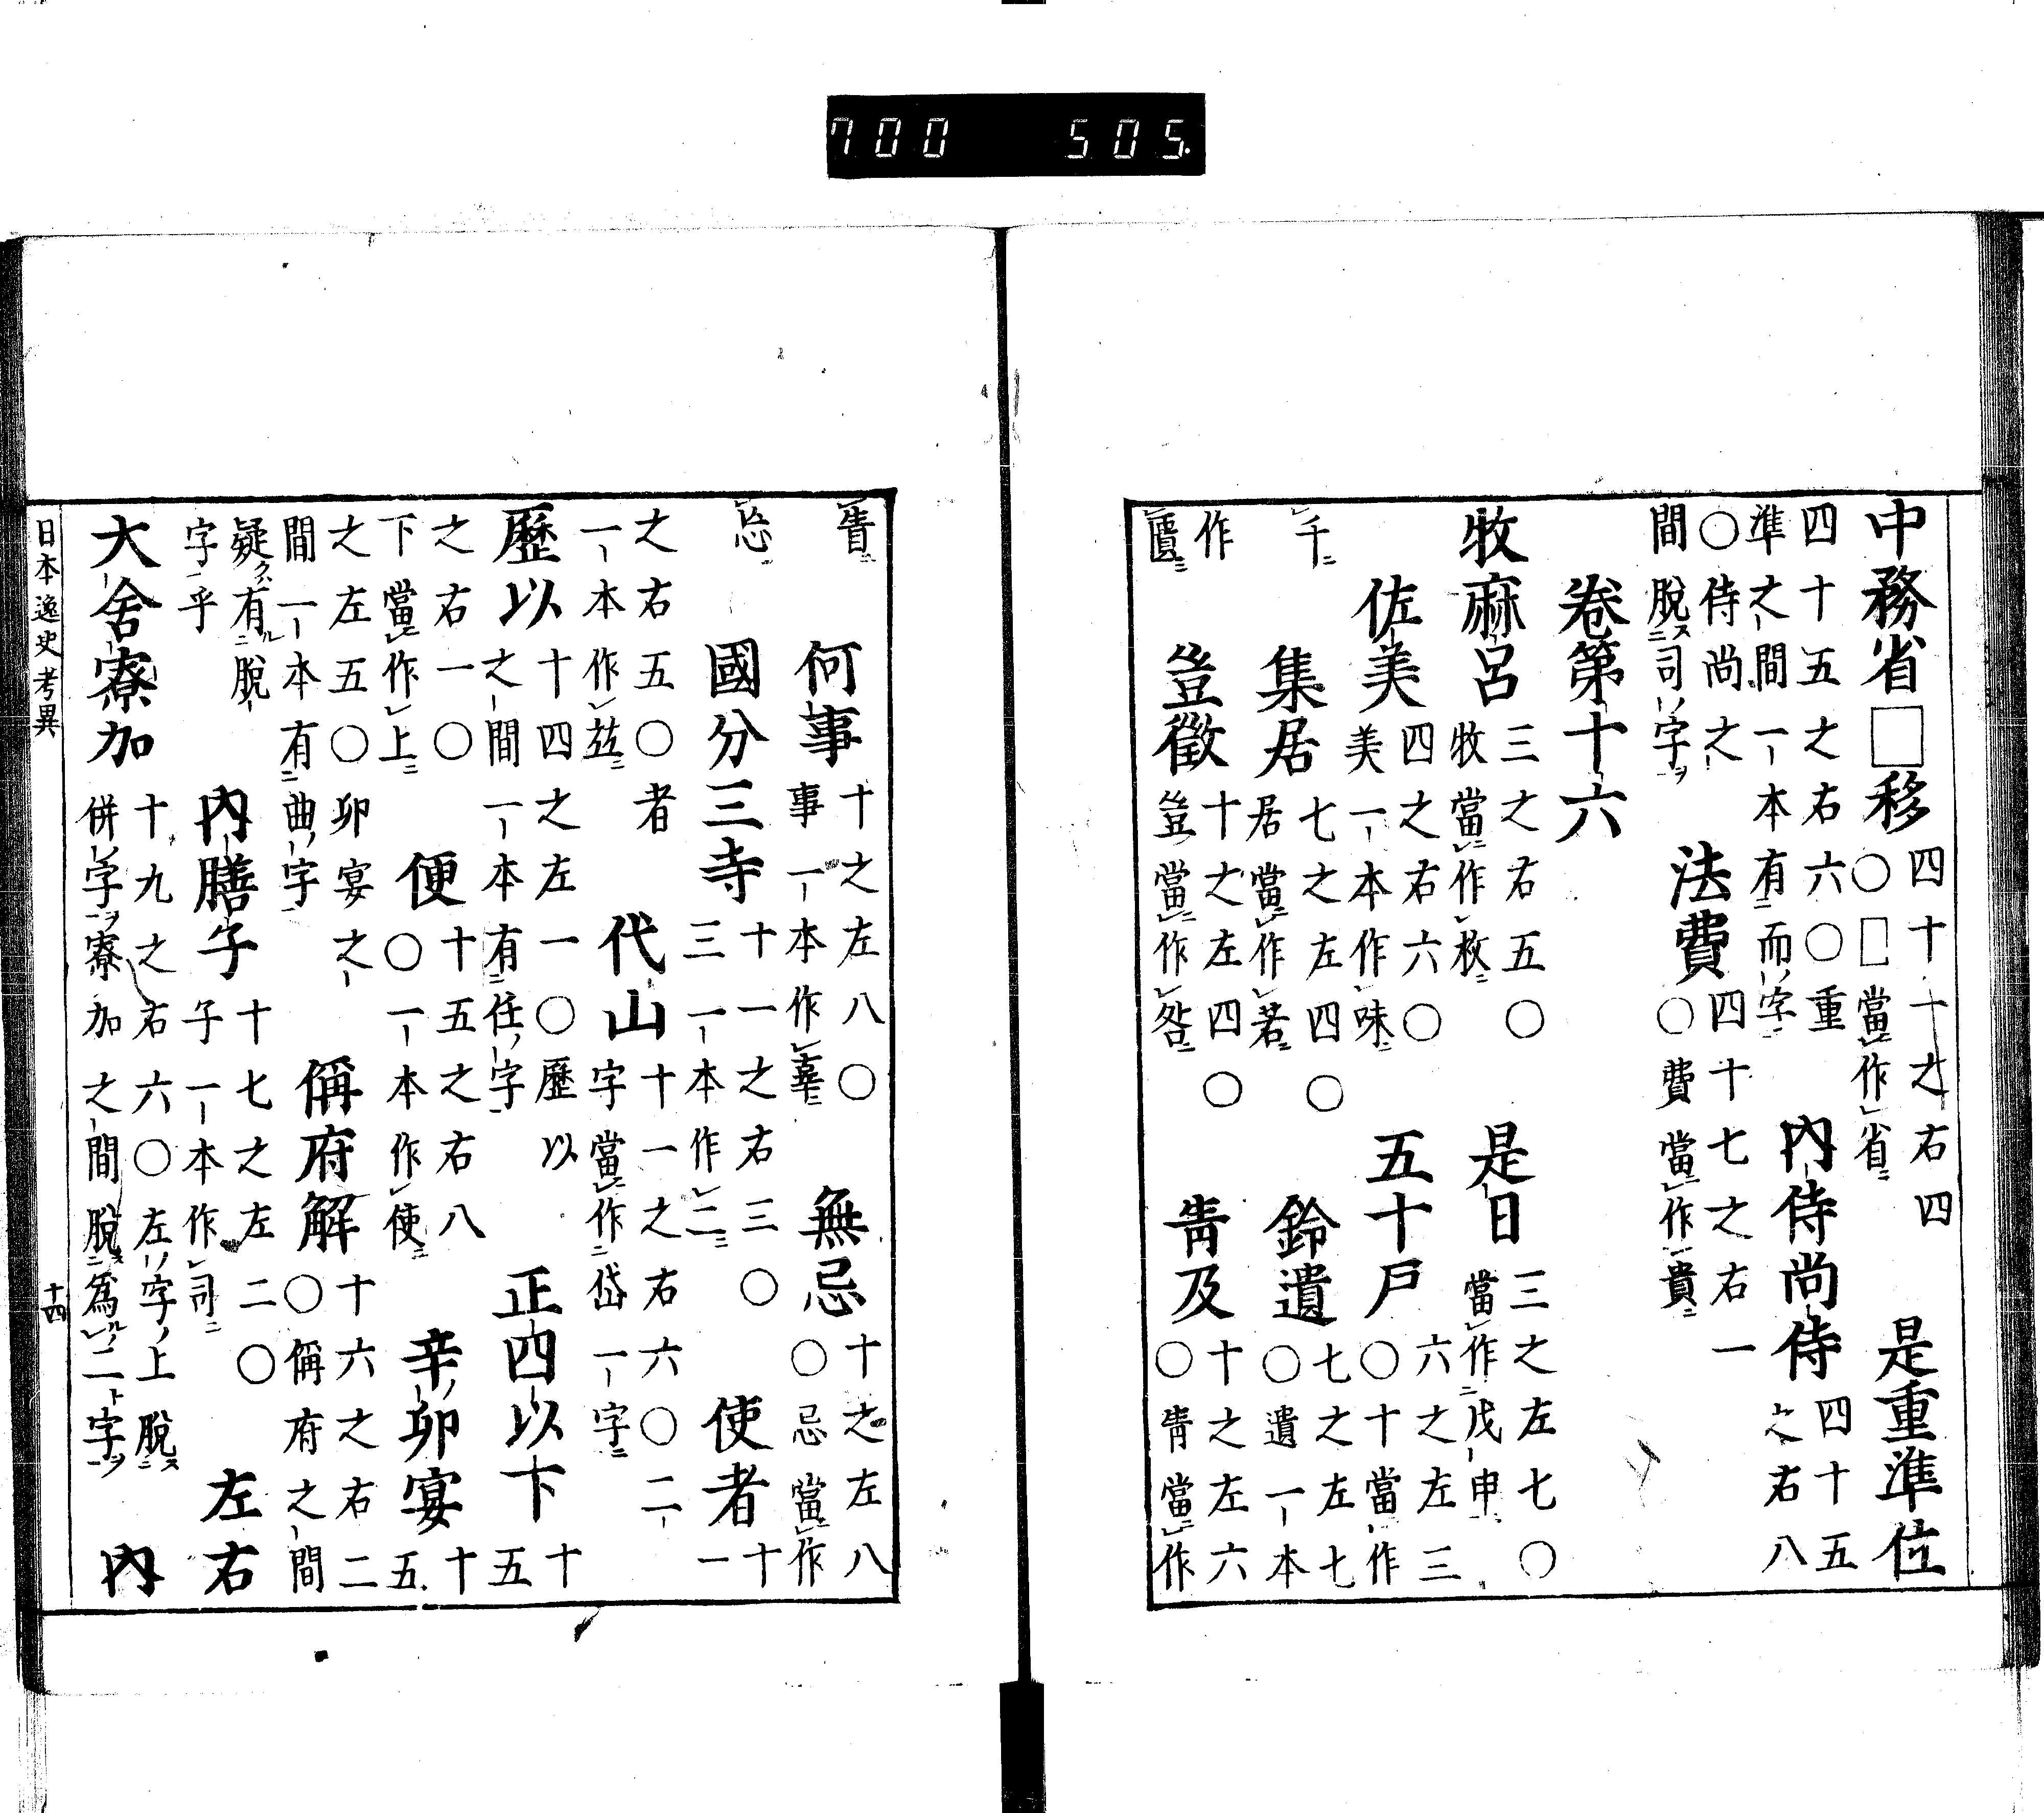 700 505.
中務省□移 四十十之右四 〇□當作省 是重準位
四十五之右六〇重 準之間一本有而字 内侍尚侍 四十五 之右八
〇侍尚之 間脱司字 法費 四十七之右一 〇費當作貴
卷第十六
牧麻呂 三之右五〇 牧當作枚 是日 三之左七〇 當作戊申
佐美 四之右六〇 美一本作味 五十戸 六之左三 〇十當作
千 集居 七之左四〇 居當作若 鈴遺 七之左七 〇遺一本
作匱 豈徵 十之左四〇 豈當作咎 青及 十之左六 〇青當作
眚 何事 十之左八〇 事一本作辜 無忌 十之左八 〇忌當作
國分三寺 十一之右三〇 三一本作二 使者 十一
之右五〇者 一本作玆 代山 十一之右六〇二 字當作岱一字
歷以 十四之左一〇歷以 之間一本有任字 正四以下 十五
之右一〇 下當作上 便 十五之右八 〇一本作使 辛卯宴 十五
之左五〇卯宴之 間一本有曲字 稱府解 十六之右二 〇稱府之間
疑有脱 字乎 内膳子 十七之左二〇 子一本作司 左右
大舍寮加 十九之右六〇左字上脱 併字寮加之間脱爲二字 内
日本逸史考異 十四